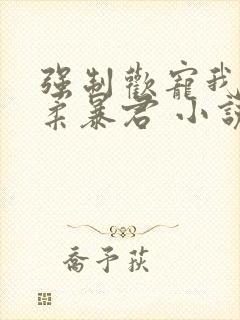 强制歡寵我
柔暴君 小說
喬予荻